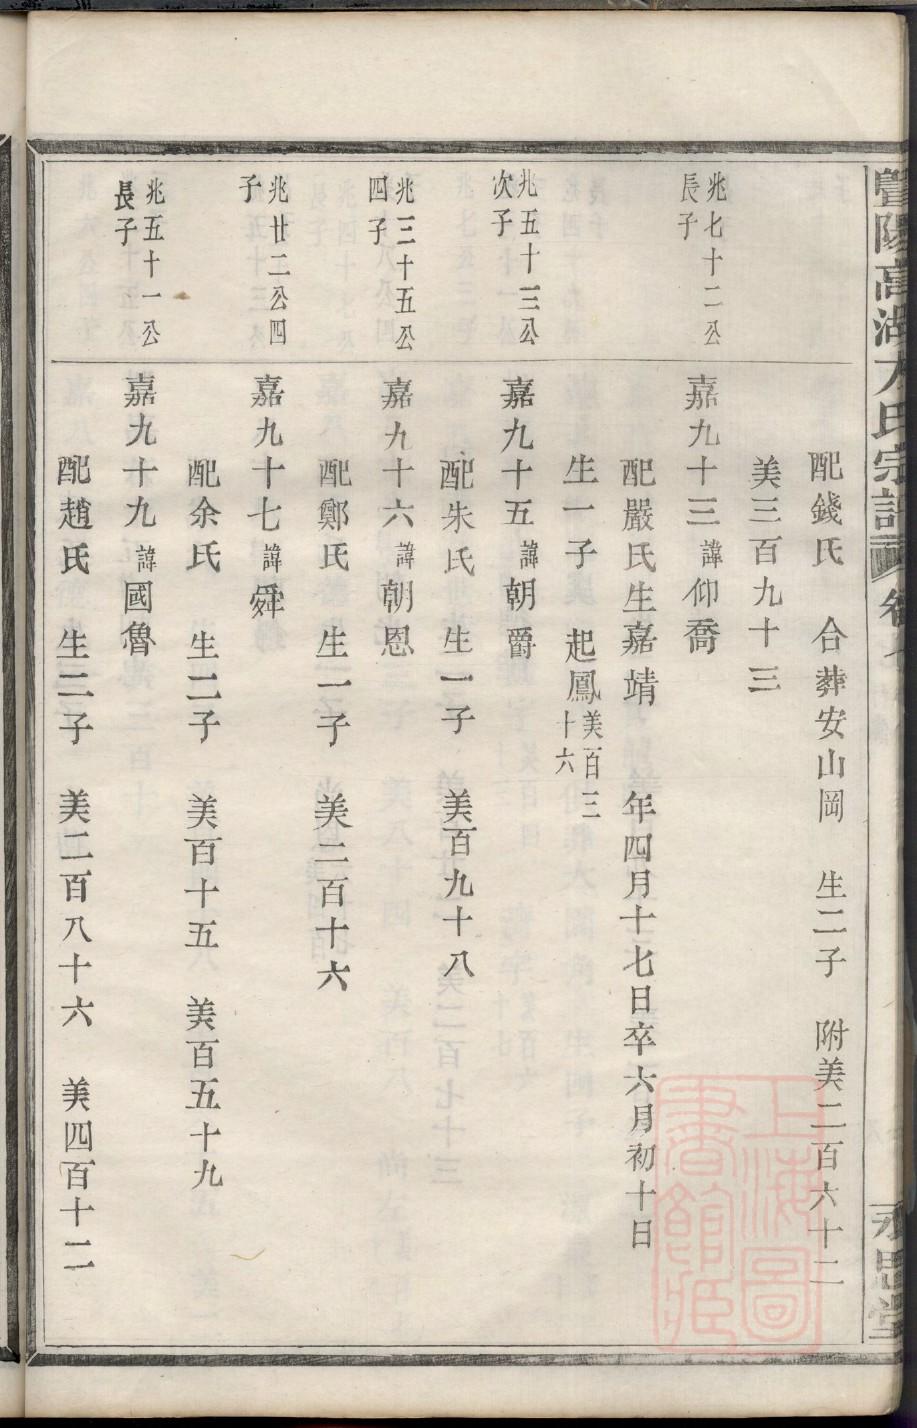 暨陽高湖方氏宗譜
永思堂
配錢氏 合葬安山岡 生二子 附美二百六十二
美三百九十三
兆七十二公
長子
嘉九十三諱仰喬
配嚴氏生嘉靖 年四月十七日卒六月初十日
生一子 起鳳美百三十六
兆五十三公
次子
嘉九十五諱朝爵
配朱氏 生一子 美百九十八
兆三十五公
四子
嘉九十六諱朝恩
配鄭氏 生一子 美二百十六
兆廿二公四
子
嘉九十七諱舜
配余氏 生二子 美百十五 美百五十九
兆五十一公
長子
嘉九十九諱國魯
配趙氏 生二子 美二百八十六 美四百十二
上海圖書館藏